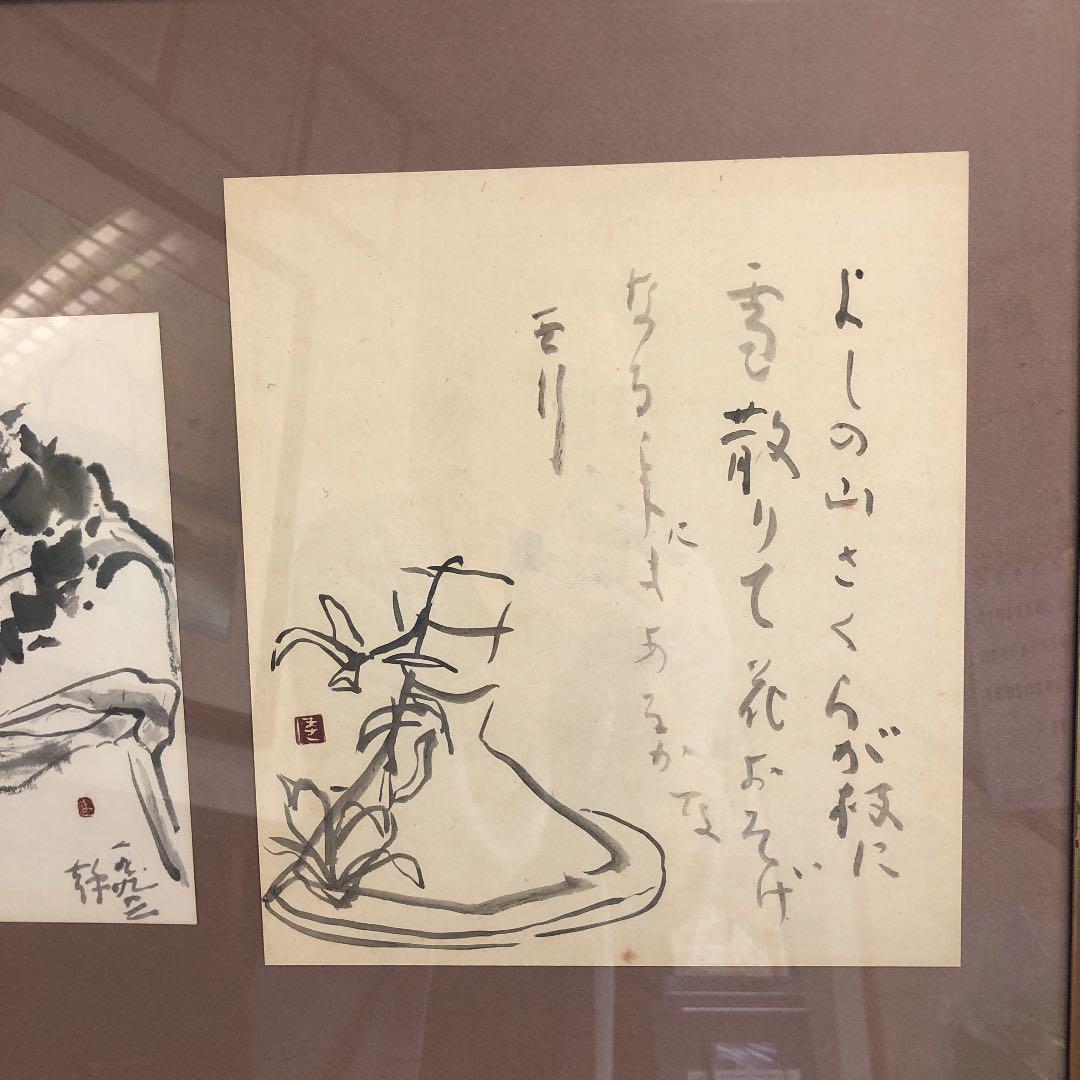 よしの山さくらが枝に
雪散りて花おそげ
なる年にもあるかな
西行
まさ